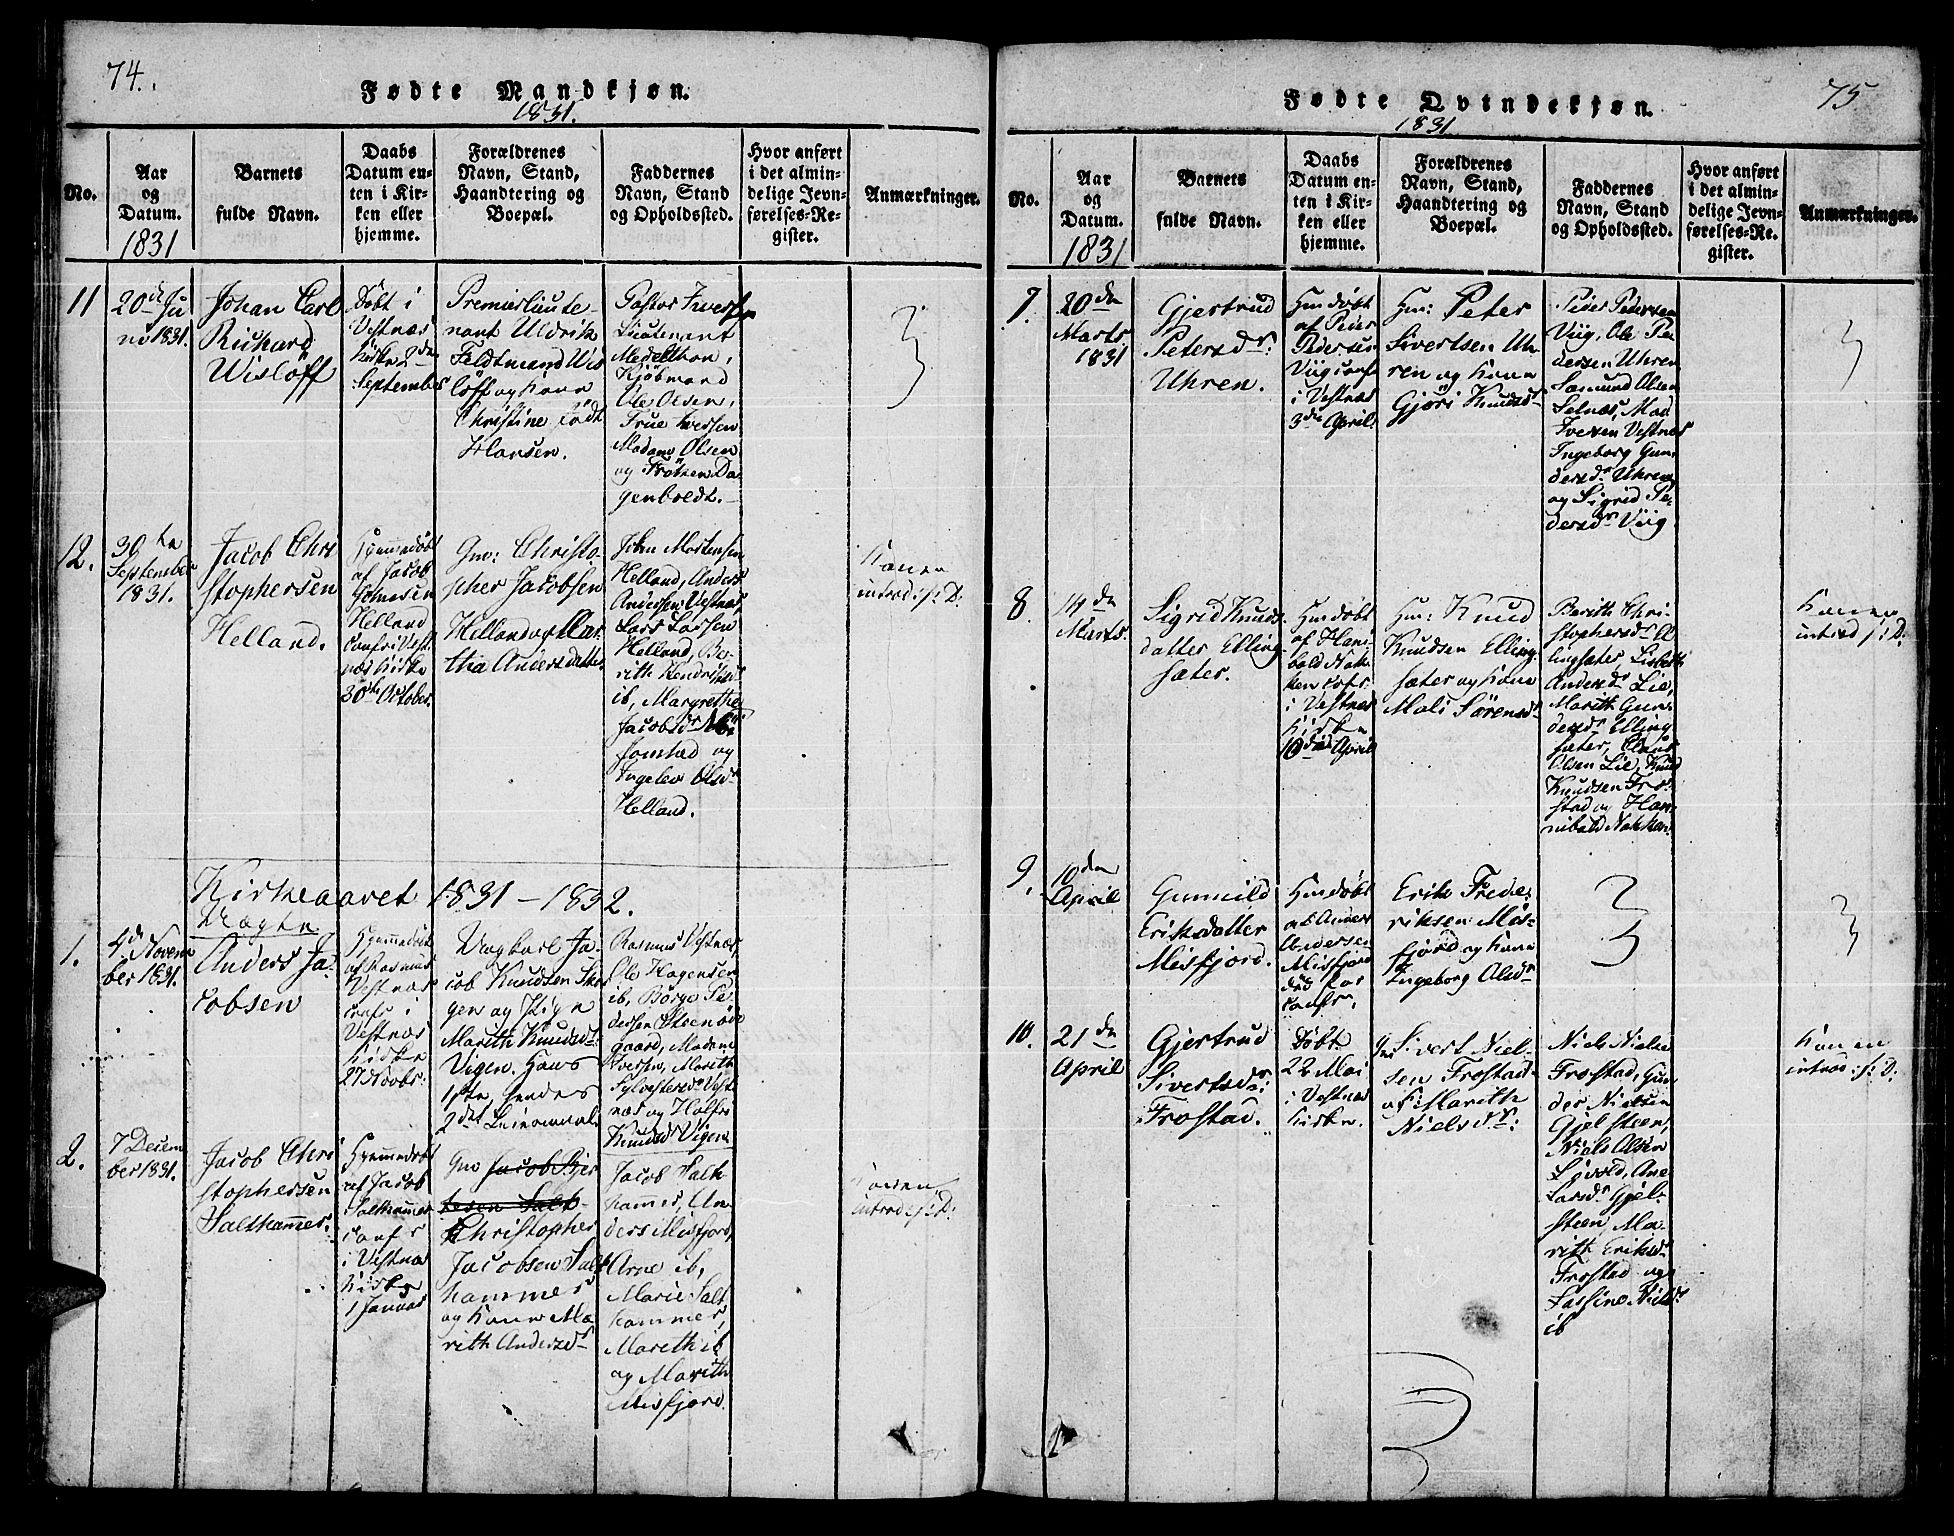 74.
Fødte Mandkjøn.
1831.
No.
Aar
og
Datum.
1831
Barnets
fulde Navn.
Daabs
Datum en-
ten i Kir-
ken eller
hjemme.
Forældrenes
Navn, Stand,
Haandtering og
Boepæl.
Faddernes
Navn, Stand
og Opholdssted.
Hvor anført
i det almin-
delige Jevn-
førelses-Re-
gister.
Anmærkninger.
11
20de Ju
ni 1831.
Johan Carl
Richard
Wisløff
Døbt i
Vestnæs
Kirke 2den
September
Premierlieute-
nant Uldrik
Feldtmand Wis
løff og Kone
Christine født
Hansen.
Pastor Iversen
Lieutenant
Kjøbmand
Ole Olsen,
Frue Iversen
Madame Olsen
og Frøken Da
genboldt.
12.
30te
September
1831.
Jacob Chri
stophersen
Helland.
Hjemmedøbt
af Jacob
Helland
conf i Vest-
næs Kirke
30te October.
Gm: Christo-
pher Jacobsen
Helland og Mar-
tha Andersdatter
John Mortensen
Helland, Anders
Andersen Vestnæs,
Lars Larsen
Helland, Be-
rith Hendriks
ib, Margrethe
Jacobsdr
og
Ingeler Olsdr
Helland.
Konen
introd: s: D:
Kirkeaaret 1831 – 1832.
1.
4de Novem
ber 1831.
Uægte
Anders Ja-
cobsen
Hjemmedøbt
af Rasmus
Vestnæs
conf i
Vestnæs
Kirke
27 Novbr:
Ungkarl Ja-
cob Knudsen
og Pige
Marith Knudsdr
Vigen. Hans
1ste, hendes
2det Leiermaal.
Rasmus Vestnæs,
Ole Hagensen
ib, Børge Pe-
dersen
gaard, Madam
Iversen, Marith
Sylvestersdr Vest
næs og
Knudsdr Vigen
2.
7 Decem
ber 1831.
Jacob Chri
stophersen
Salthammer.
Hjemmedøbt
af Jacob
Salthammer
conf
i Vestnæs
Kirke
1 Januar
Gm
Christopher
Jacobsen Salt
hammer
og Kone Ma
rith Andersdr
Jacob Salt
hammer, An-
ders Misfjord,
Arne ib,
Marie Salt
hammer,
Mareth ib
og Marith
Misfjord.
Konen
introd: s: D:
75
Fødte Qvindekjøn.
1831
No.
Aar
og
Datum.
1831
Barnets
fulde Navn.
Daabs
Datum en-
ten i Kir-
ken eller
hjemme.
Forældrenes
Navn, Stand,
Haandtering og
Boepæl.
Faddernes
Navn, Stand
og Opholdssted.
Hvor anført
i det almin-
delige Jevn-
førelses-Re-
gister.
Anmærkninger.
7.
20de
Marts
1831
Gjertrud
Petersdr:
Uhren.
Hmdøbt
af Peder
Pedersen
Viig conf
i Vestnæs
3die April
Gm: Peter
Sivertsen Uh-
ren og Kone
Gjøri Knudsdr
Peder Pedersen
Viig, Ole Pe-
dersen Uhren
Sæmund Olsen
Selnæs, Mad
Iversen Vestnæs
Ingeborg Gun-
dersdr Uhren
og Sigrid Pe-
dersdr Viig
8
14de
Marts.
Sigrid Knuds-
datter Elling-
sæter.
Hmdøbt
af Hani-
bald Nak-
ken conf
i Vestnæs
Kirke
10de April
Gm: Knud
Knudsen Elling-
sæter og Kone
Mali Sørensdr
Berith Chri-
stophersdr El
lingsæter, Lisbeth
Andersdr Lie,
Marith Gun-
dersdr Elling
sæter, Claus
Olsen Lie, Knud
Knudsen Fro-
stad og Han-
nibald Nakken
Konen
introd s: D:
9.
10de
April
Gunnild
Eriksdatter
Misfjord.
Hmdøbt
af Anders
Andersen
Misfjord
død før
conf.
Erik Frede-
riksen Mis-
fjord og Kone
Ingeborg Olsdr
10.
21de
April
Gjertrud
Sivertsdr:
Frostad.
Døbt
22 Mai
i Vestnæs
Kirke.
Gm Sivert Niel-
sen Frostad
Marith
Nielsdr:
Niels Nielsen
Frostad, Gun
der Nielsen
Gjelsteen,
Niels Olsen
Ane
Larsdr Gjel-
steen Ma-
rith Eriksdr
Frostad og
Nielsdr
ib
Konen
introd: s: D: